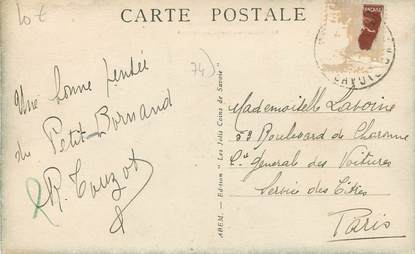 10 €
CARTE POSTALE
74)
Une bonne pensée
du Petit Bornand
R. Touzot
ABEM. - Edition " Les Jolis Coins de Savoie "
Mademoiselle Lavoine
53 Boulevard de Charonne
Cie General des Voitures
Service des Titres
Paris
SAVOIE